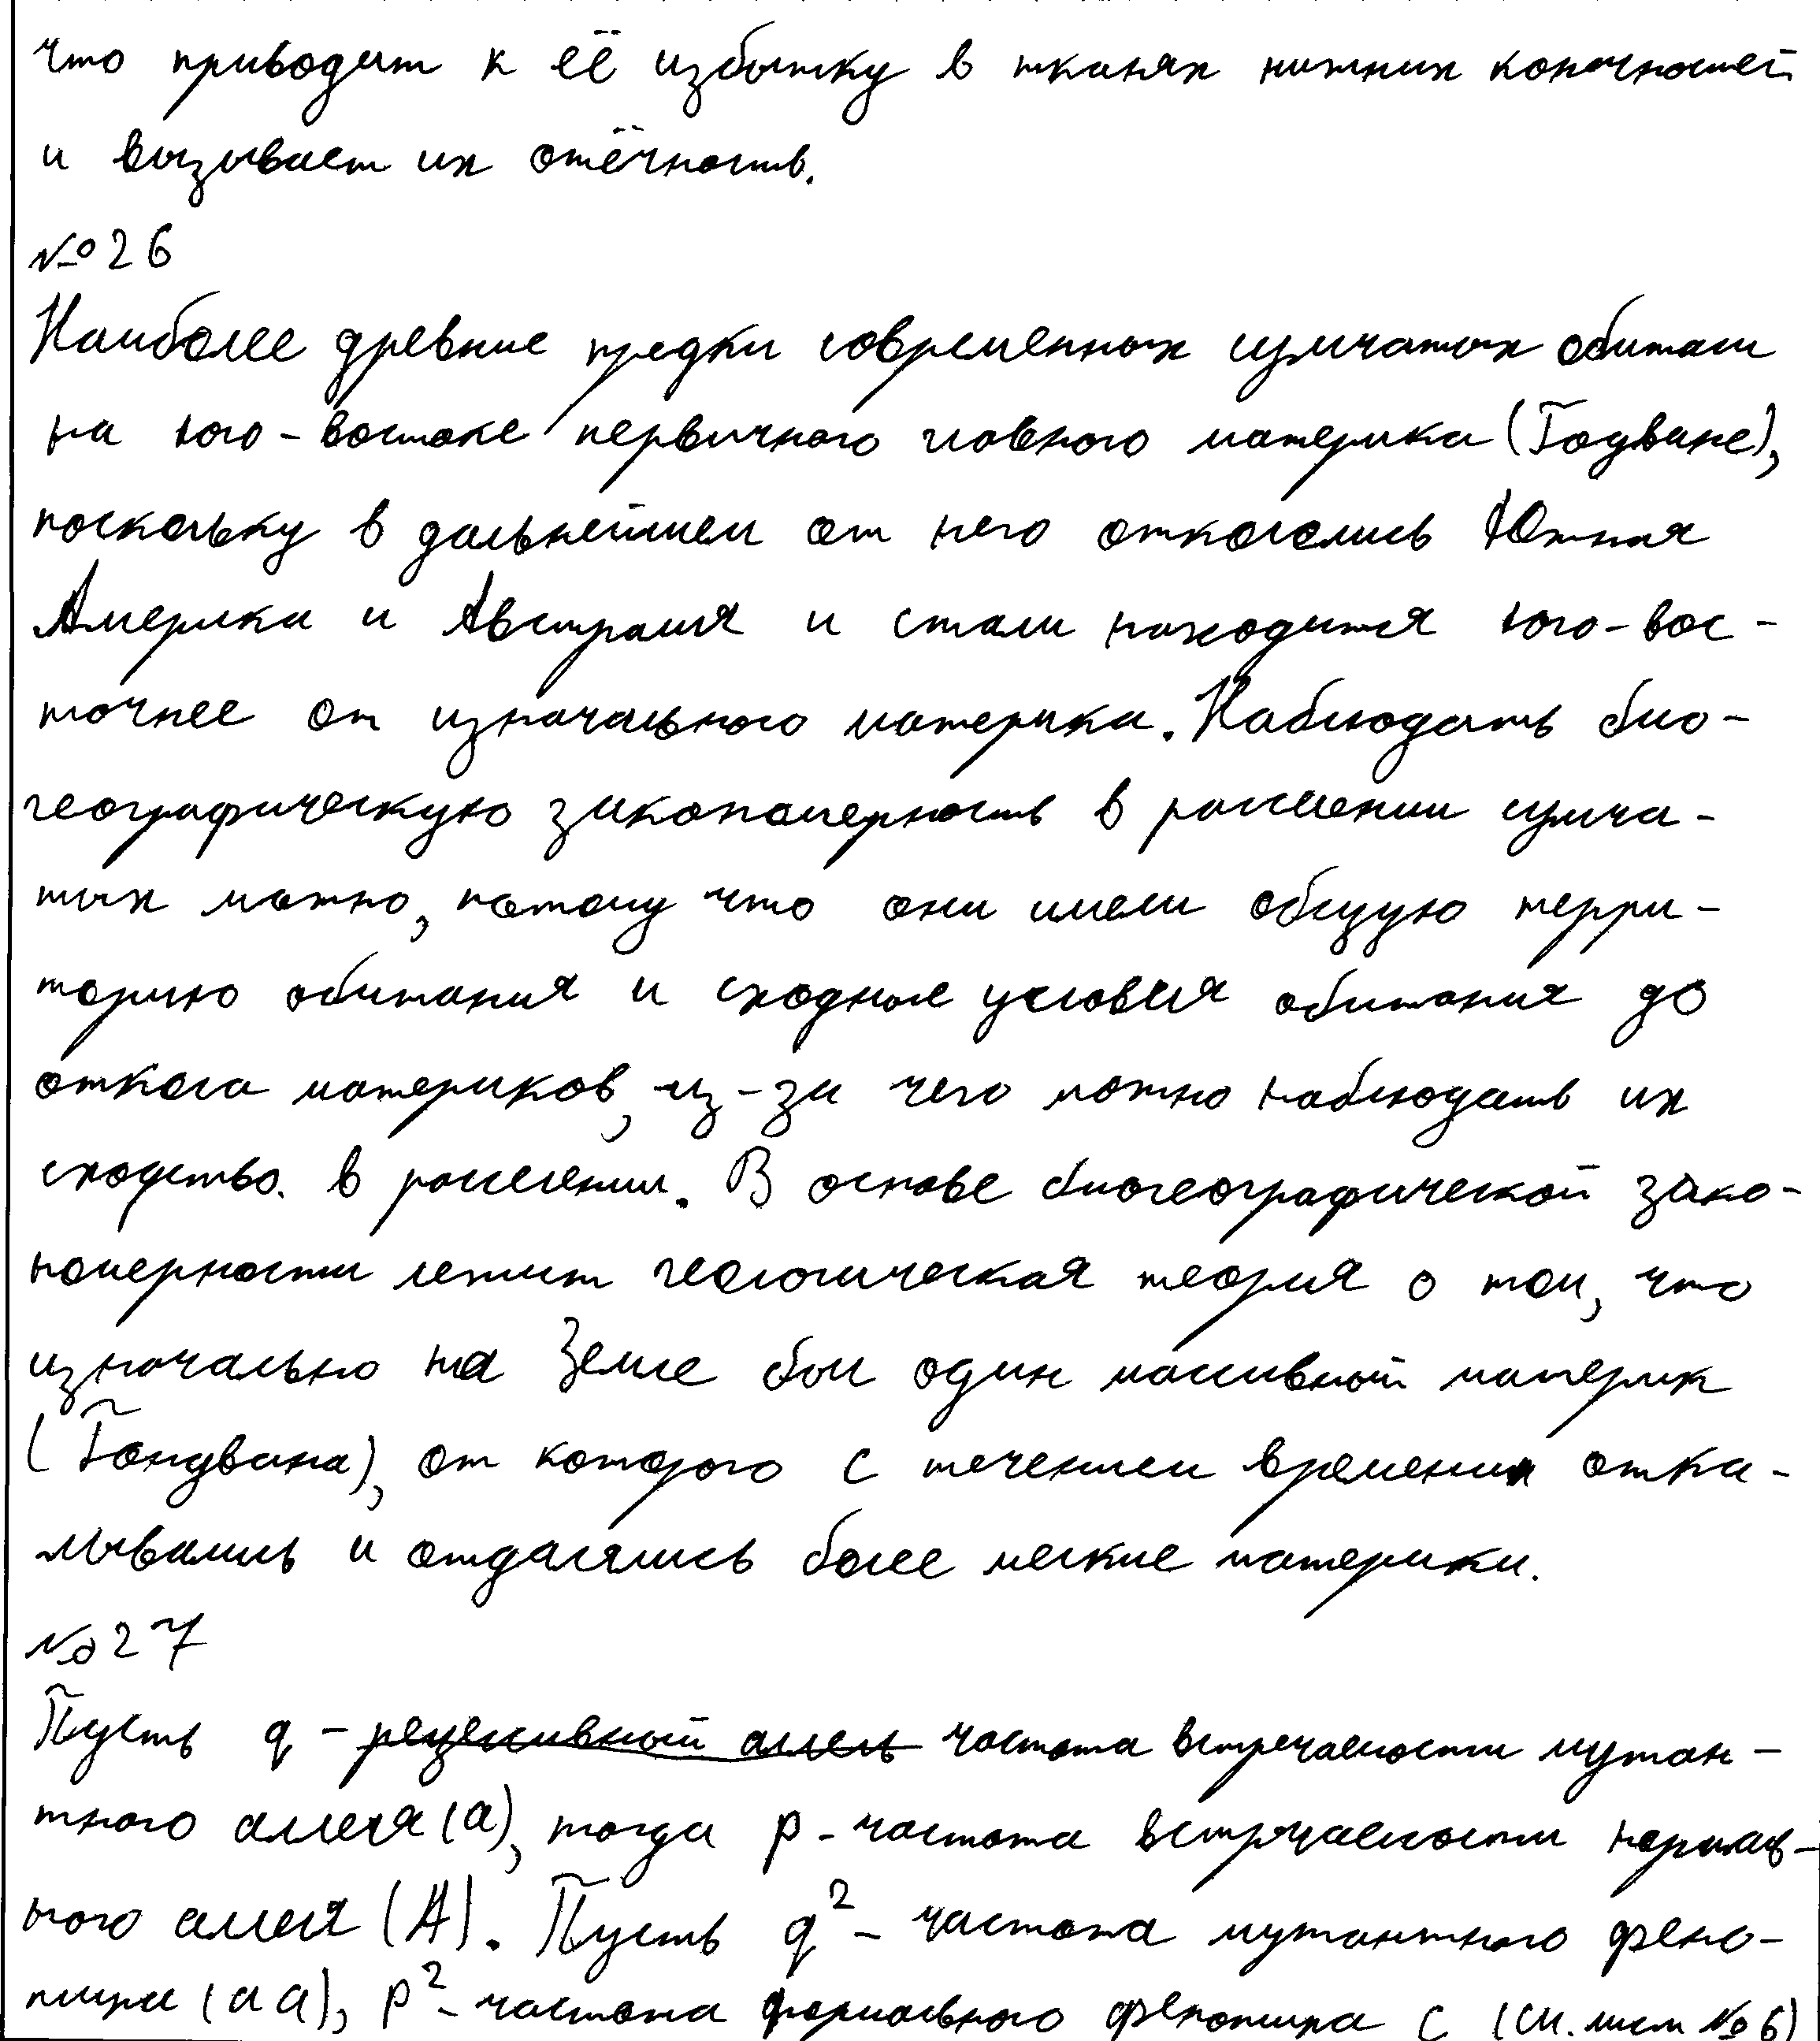 что приводит к её избытку в тканях нижних конечностей
и вызывает их отёчность.
№26
Наиболее древние предки современных сумчатых обитали
на юго-востоке первичного главного материка (Годване),
поскольку в дальнейшем от него откололись Южная
Америка и Австралия и стали находится юго-вос-
точнее от изначального материка. Наблюдать био-
географическую закономерность в расселении сумча-
тых можно, потому что они имели общую терри-
торию обитания и сходные условия обитания до
откола материков, из-за чего можно наблюдать их
сходство в расселении. В основе биогеографической зако-
номерности лежит геологическая теория о том, что
изначально на Земле был один массивный материк
(Гондвана), от которого с течением времени отка-
лывались и отдалялись более мелкие материки.
№27
Пусть q - рецессивный аллель частота встречаемости мутан-
тного аллеля (а), тогда p - частота встречаемости нормаль-
ного аллеля (А). Пусть q² - частота мутантного фено-
типа (аа), p² - частота формального фенотипа с (см. лист №6)